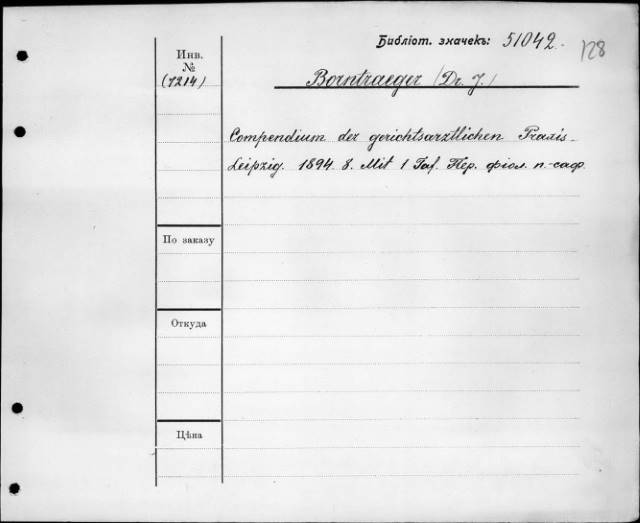 Библіот. значекъ: 51042.
128
Инв.
№
(7214)
Borntraeger (Dr. J.)
Compendium der gerichtsarztlichen Praxis-
Leipzig. 1894. 8. Mit 1 Taf. Пер. фіол. п.-саф.
По заказу
Откуда
Цѣна